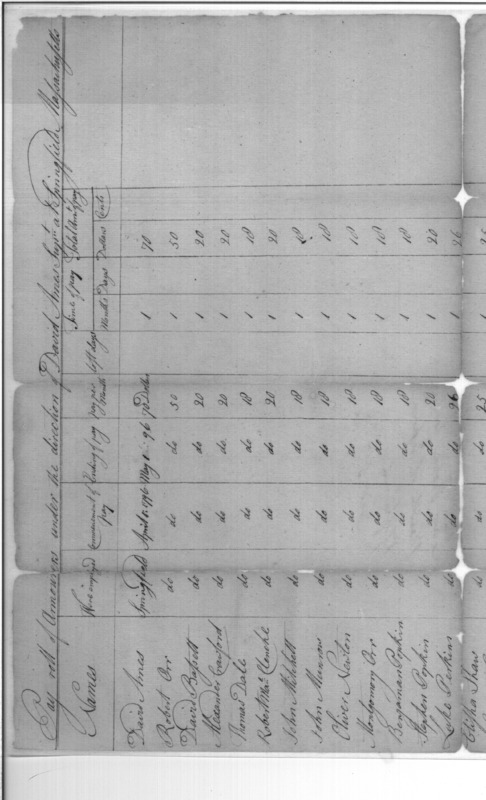 Pay roll of Armourers under the direction of David Ames Supt. at Springfield Massachusetts
Names Where employed Commencement of pay Ending of pay pay per Month lost days Time of pay Months Days Total Amt. of pay Dollars Cents
David Ames Springfield April 1. 1796 May 1. 96 70 Dollar 1 70
Robert Orr do do do 50 1 50
David do do do 20 1 20
Alexander Crawford do do do 20 1 20
Thomas Dale do do do 18 1 18
Robert Mac Clench do do do 20 1 20
John Mitchell do do do 18 1 18
John do do do 18 1 18
Oliver Newton do do do 18 1 18
Montgomery Orr do do do 18 1 18
Benjaman Popkin do do do 18 1 18
Stephen Popkin do do do 20 1 20
Luke Perkins do do do 26 1 26
Elisha Shaw do do do 25 1 25